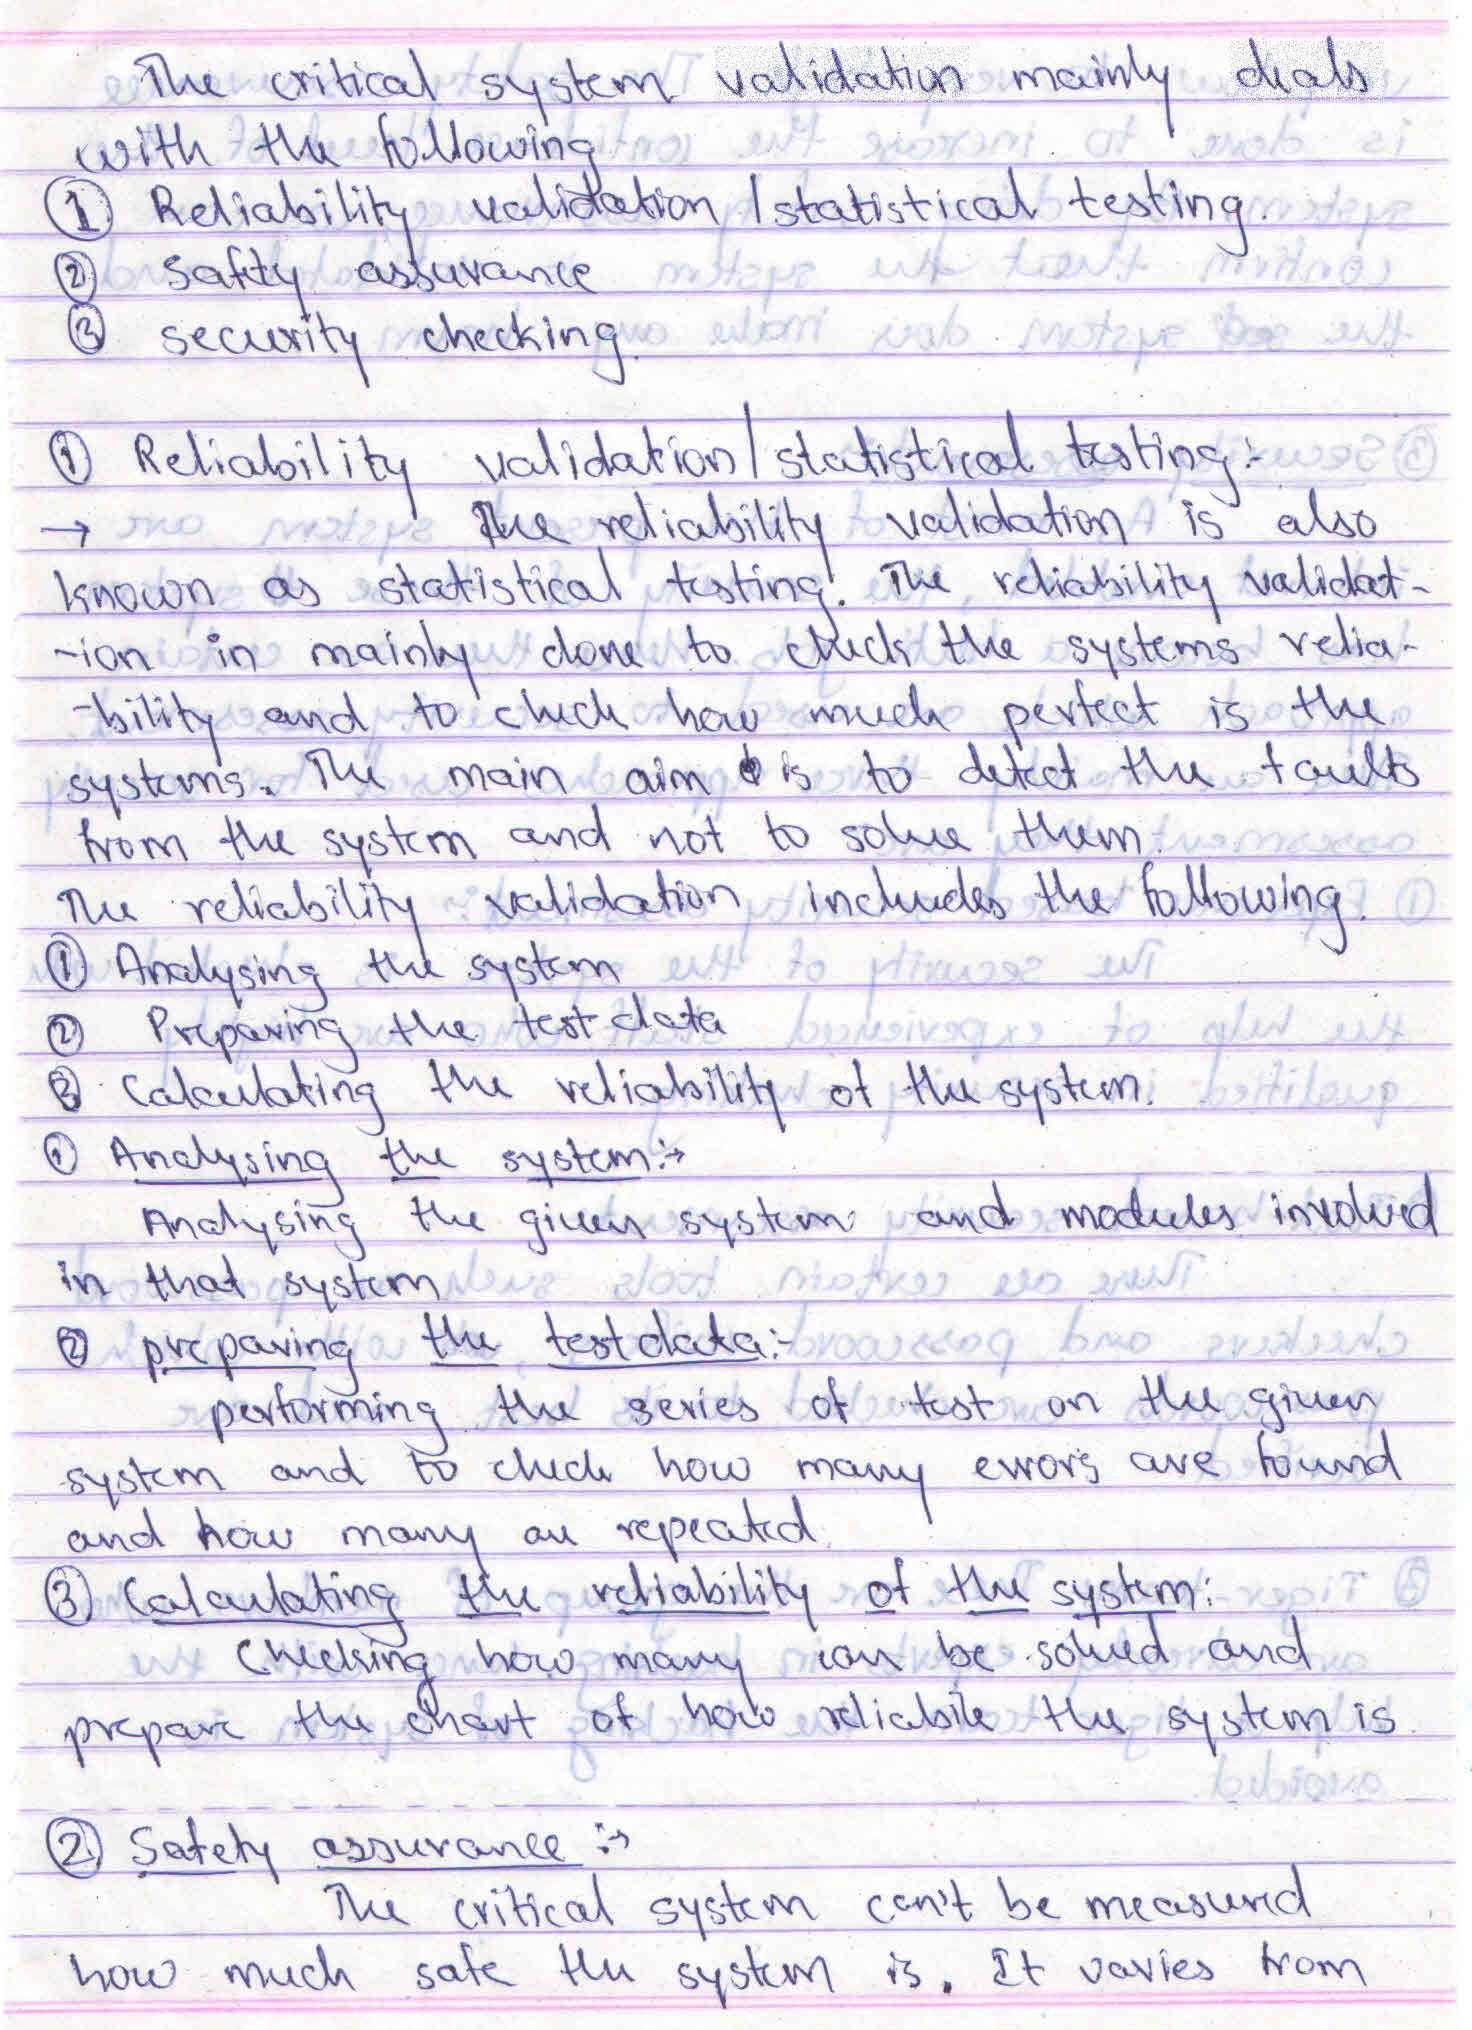 The critical system validation mainly deals
with the following
① Reliability validation / statistical testing.
② Safety assurance
③ security checking.
① Reliability validation / statistical testing:-
→ The reliability validation is also
known as statistical testing. The reliability validat-
-ion in mainly done to check the systems relia-
-bility and to check how much perfect is the
systems. The main aim is to detect the faults
from the system and not to solve them.
The reliability validation includes the following.
① Analysing the system
② Preparing the test data
③ Calculating the reliability of the system.
① Analysing the system:→
Analysing the given system and modules involved
in that system
② preparing the test data:-
performing the series of test on the given
system and to check how many errors are found
and how many are repeated.
③ Calculating the reliability of the system:
Checking how many can be solved and
prepare the chart of how reliabile the system is.
② Safety assurance :→
The critical system can't be measured
how much safe the system is. It varies from